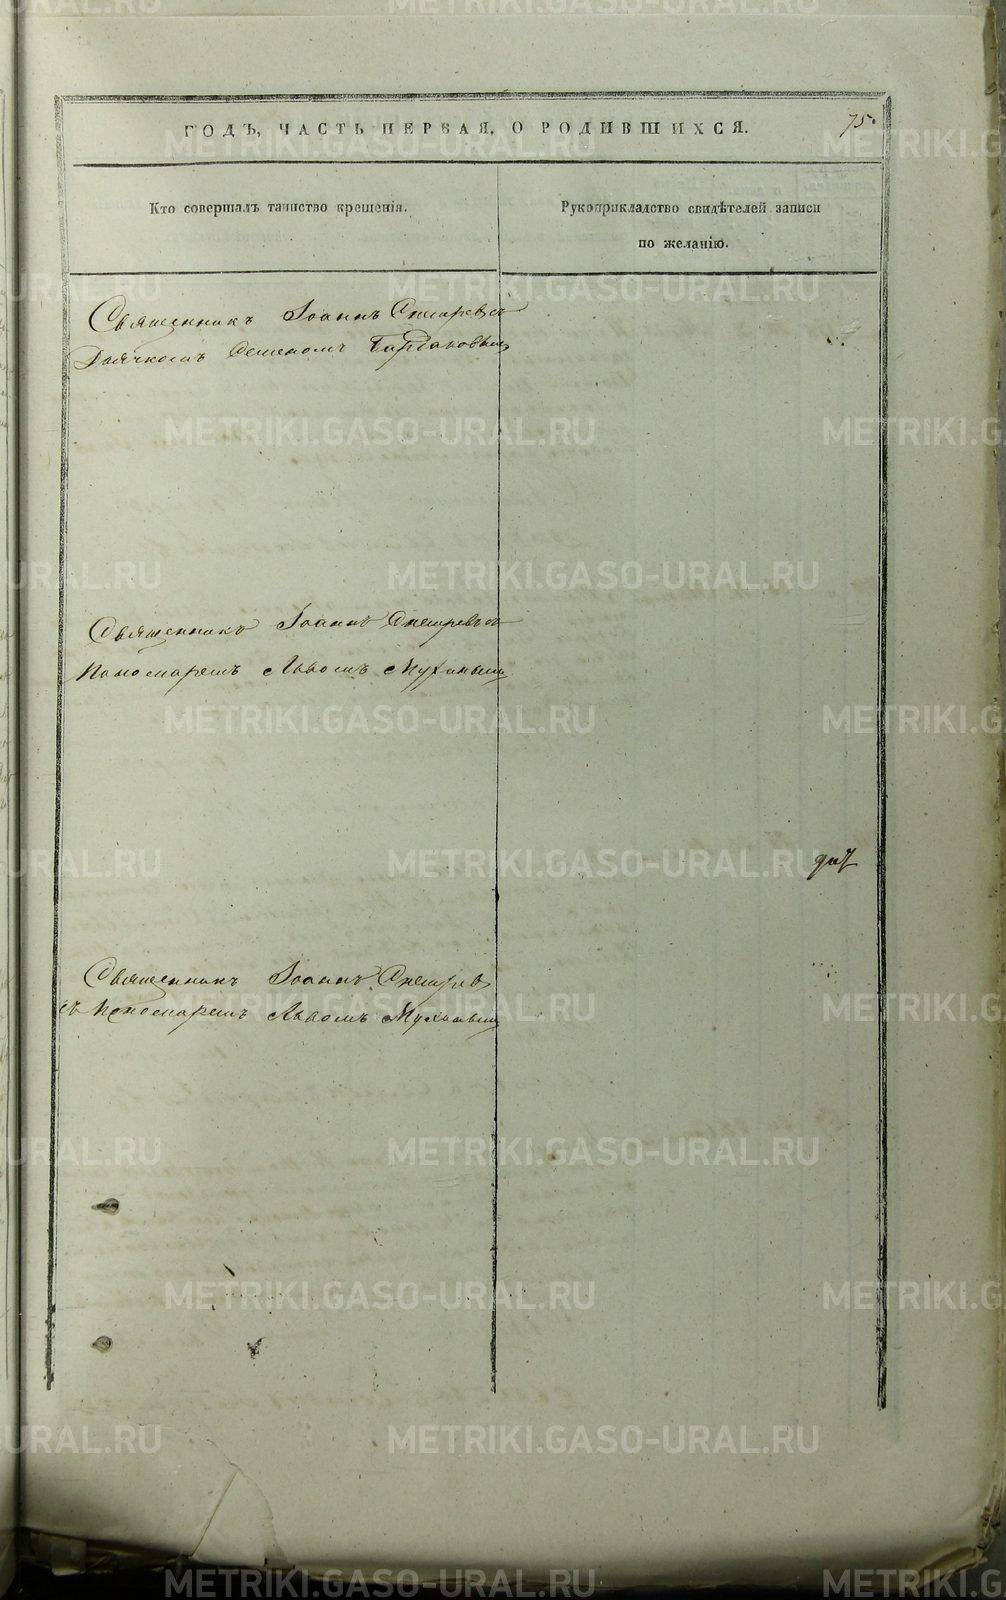 ГОДЪ, ЧАСТЬ ПЕРВАЯ, О РОДИВШИХСЯ.
75.
Кто совершалъ таинство крещенія.
Рукоприкладство свидѣтелей записи
по желанію.
Священникъ Іоаннъ съ
Дьячкомъ Семеномъ
Священникъ Іоаннъ съ
Пономаремъ Львомъ Мухинымъ
Священникъ Іоаннъ
съ Пономаремъ Львомъ Мухинымъ
METRIKI.GASO-URAL.RU